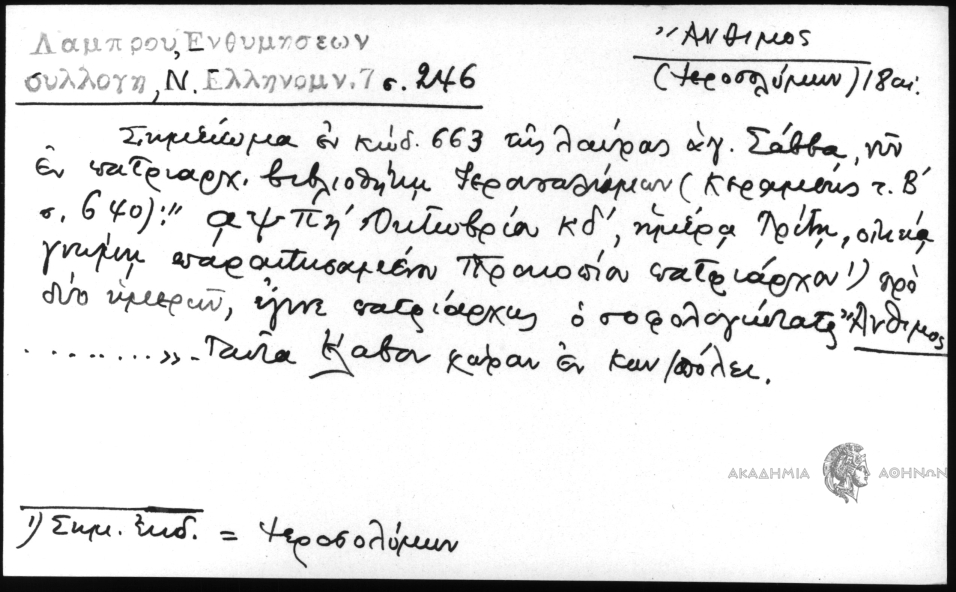 Λαμπρου, Ενθυμησεων
συλλογη, Ν. Ελληνομν. 7 σ. 246
Ἄνθιμος
(Ἱεροσολύμων) 18 αἰ.
Σημείωμα ἐν κώδ. 663 τῆς λαύρας ἁγ. Σάββα, νῦν
ἐν πατριαρχ. βιβλιοθήκῃ Ἱεροσολύμων (Κεραμεύς τ. Β΄
σ. 640): " αψπη Ὀκτωβρίου κδ΄, ἡμέρᾳ Τρίτῃ, οἰκείᾳ
γνώμῃ παραιτησαμένου Προκοπίου πατριάρχου 1) πρὸ
δύο ἡμερῶν, ἔγινε πατριάρχης ὁ σοφολογιώτατος Ἄνθιμος
........». Ταῦτα ἔλαβον χώραν ἐν Κων/πόλει.
ΑΚΑΔΗΜΙΑ ΑΘΗΝΩΝ
1) Σημ. ἐκδ. = Ἱεροσολύμων